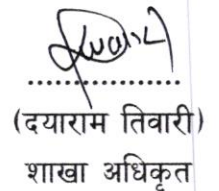 ....................
(दयाराम तिवारी)
शाखा अधिकृत